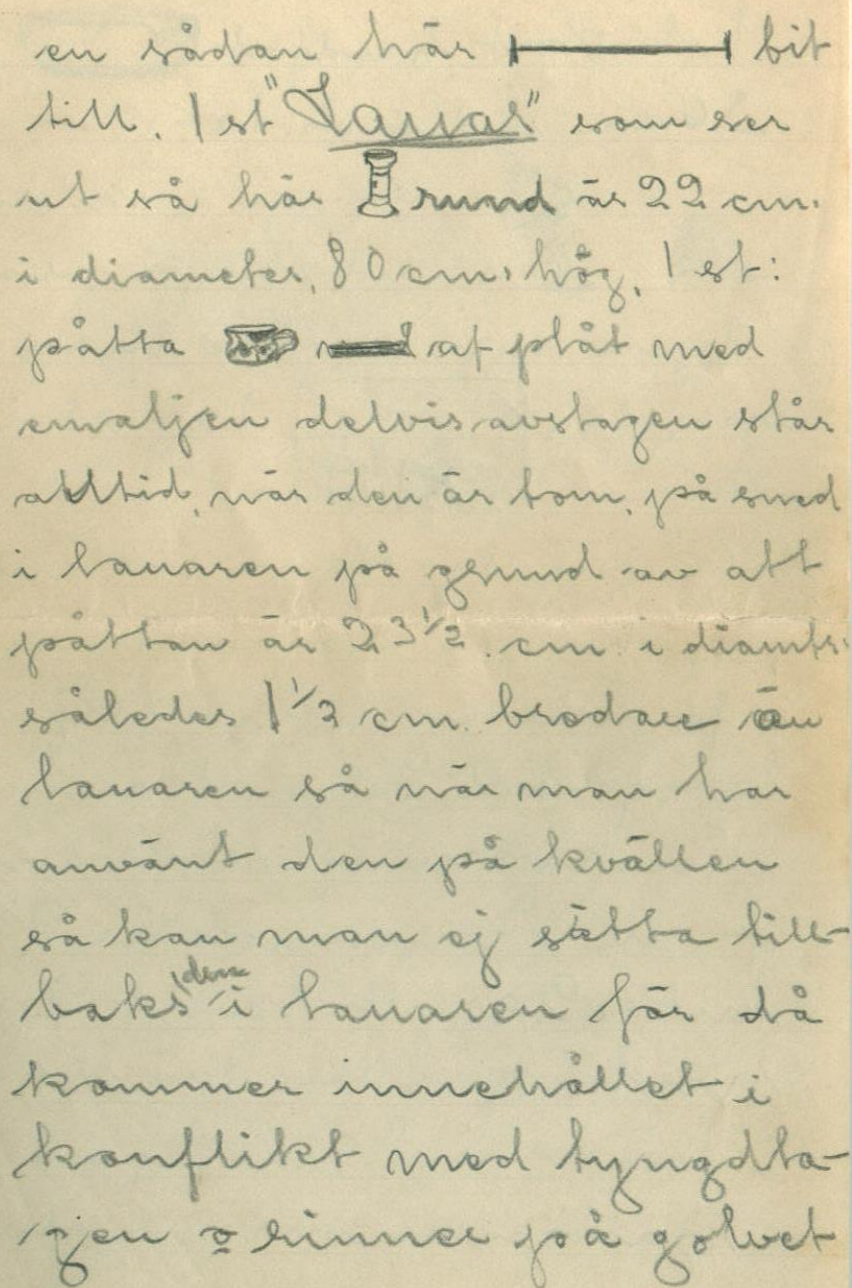 en sådan här bit
till. 1 st "Lauar" som ser
ut så här rund är 22 cm.
i diameter, 80 cm. hög. 1 st:
påtta af plåt med
emaljen delvis avslagen står
alltid, när den är tom, på sned
i lauaren på grund av att
påttan är 23 1/2 cm i diamtr.
således 1 1/2 cm. bredare än
lauaren så när man har
använt den på kvällen
så kan man ej sätta till-
baks den i lauaren för då
kommer innehållet i
konflikt med tyngdla-
gen o rinner på golvet